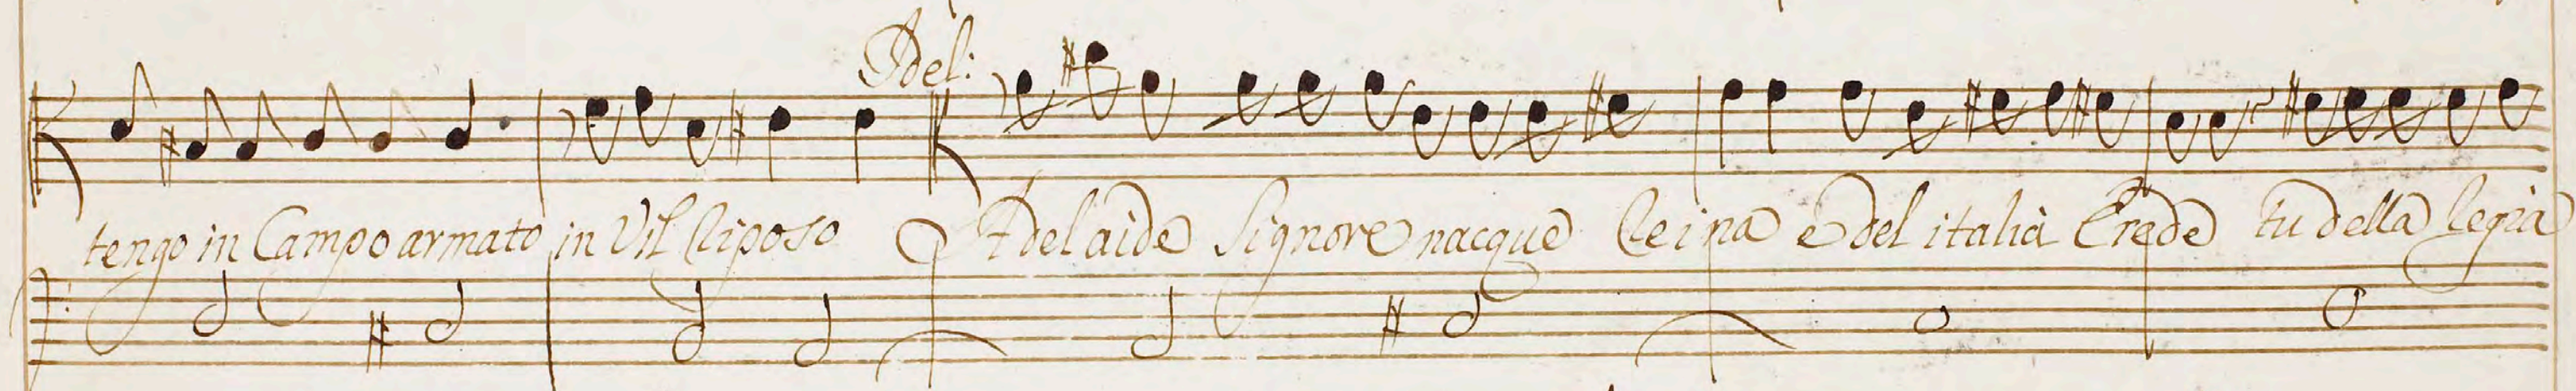 Adel:
tengo in Campo armato in Vil Riposo Adelaide Signore nacque Reina e del italia Erede tu della Regia